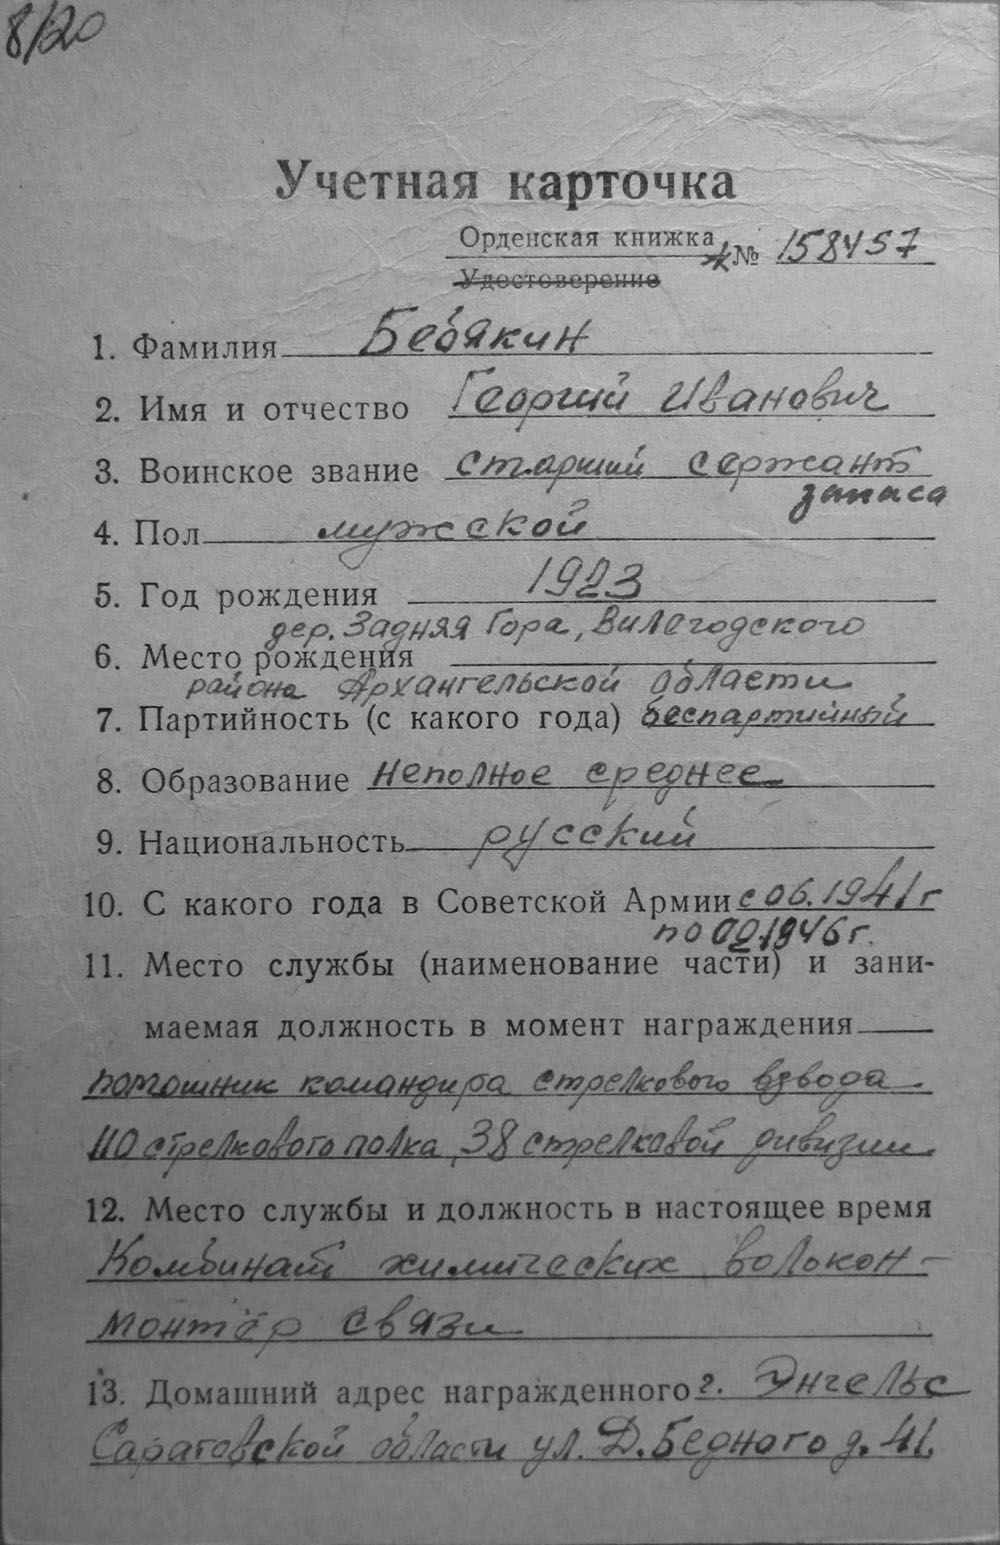 8/20
Учетная карточка
Орденская книжка № 158457
Удостоверение
1. Фамилия Бебякин
2. Имя и отчество Георгий Иванович
3. Воинское звание старший сержант
запаса
4. Пол мужской
5. Год рождения 1923
дер. Задняя Гора, Вилегодского
6. Место рождения
района Архангельской области
7. Партийность (с какого года) беспартийный
8. Образование неполное среднее
9. Национальность русский
10. С какого года в Советской Армии с 06.1941 г
по 02.1946 г.
11. Место службы (наименование части) и зани-
маемая должность в момент награждения
помошник командира стрелкового взвода
110 стрелкового полка, 38 стрелковой дивизии
12. Место службы и должность в настоящее время
Комбинат химических волокон –
монтёр связи
13. Домашний адрес награжденного г. Энгельс
Саратовской области ул. Д.Бедного д. 41.